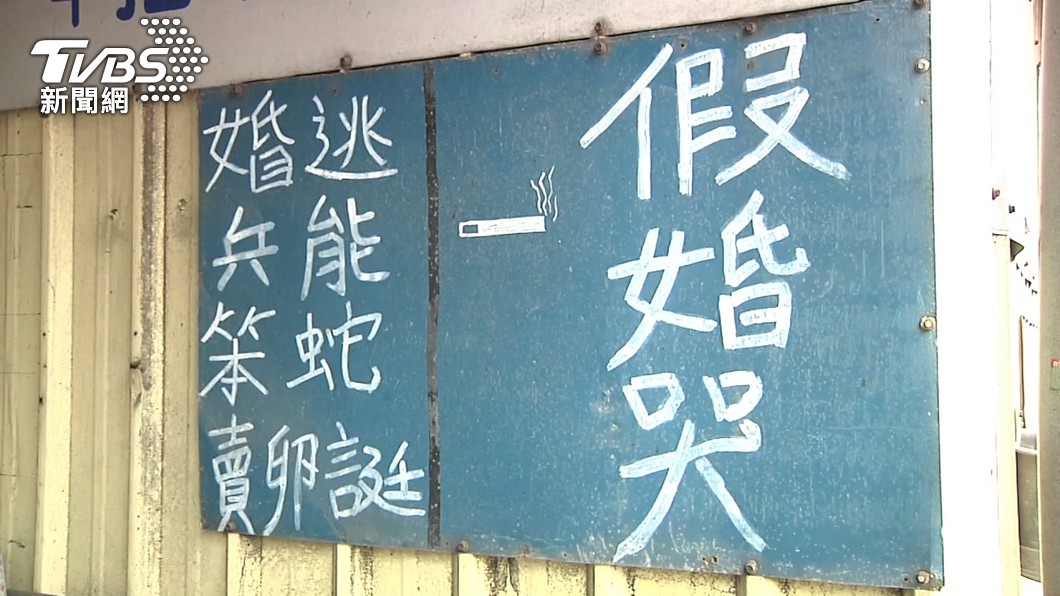 TVBS
新聞網
假婚哭
逃能蛇誕
婚兵笨賣卵